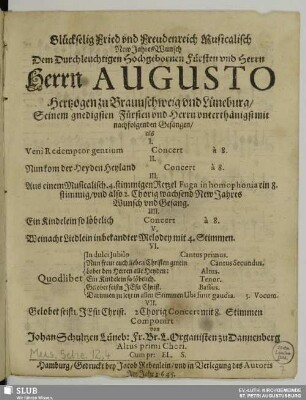 Glückselig Fried vnd Freudenreich Musicalisch
New Jahres Wunsch
Dem Durchleuchtigen Hochgebornen Fürsten vnd Herrn
Herrn AUGUSTO
Hertzogen zu Braunschweig vnd Lüneburg/
Seinem gnedigsten Fürsten vnd Herrn vnterthänigst mit
nachfolgenden Gesängen/
als
I.
Veni Redemptor gentium Concert à 8.
II.
Nun kom der Heyden Heyland Concert à 8.
III.
Aus einem Musicalisch. 4. stimmigen Retzel Fuga in homophonia ein 8.
stimmig/ vnd also 2. Chörig wachsend New Jahres
Wunsch vnd Gesang.
IIII.
Ein Kindelein so löbelich Concert à 8.
V.
Weinacht Liedlein in bekandter Melodey mit 4. Stimmen.
VI.
Quodlibet
In dulci Jubilo Cantus primus.
Nun frewt euch lieben Christen gmein Cantus Secundus.
Lobet den Herren alle Heyden: Altus.
Ein Kindelein so löbelich. Tenor.
Gelobet seistu JEsu Christ. Bassus.
3. Vocum.
VII.
Gelobet seistu JEsu Christ. 2 Chörig Concert mit 8. Stimmen
Componirt
von
Johan Schultzen Lüneb: Fr. Br. L. Organisten zu Dannenberg
Altus primi Chori.
Cum pr: El. S.
Hamburg/ Gedruckt bey Jacob Rebenlein/ vnd in Verlegung des Autoris
Im Jahr
SLUB
Wir führen Wissen.
EV.-LUTH. KIRCHGEMEINDE
ST. PETRI AUGUSTUSBURG